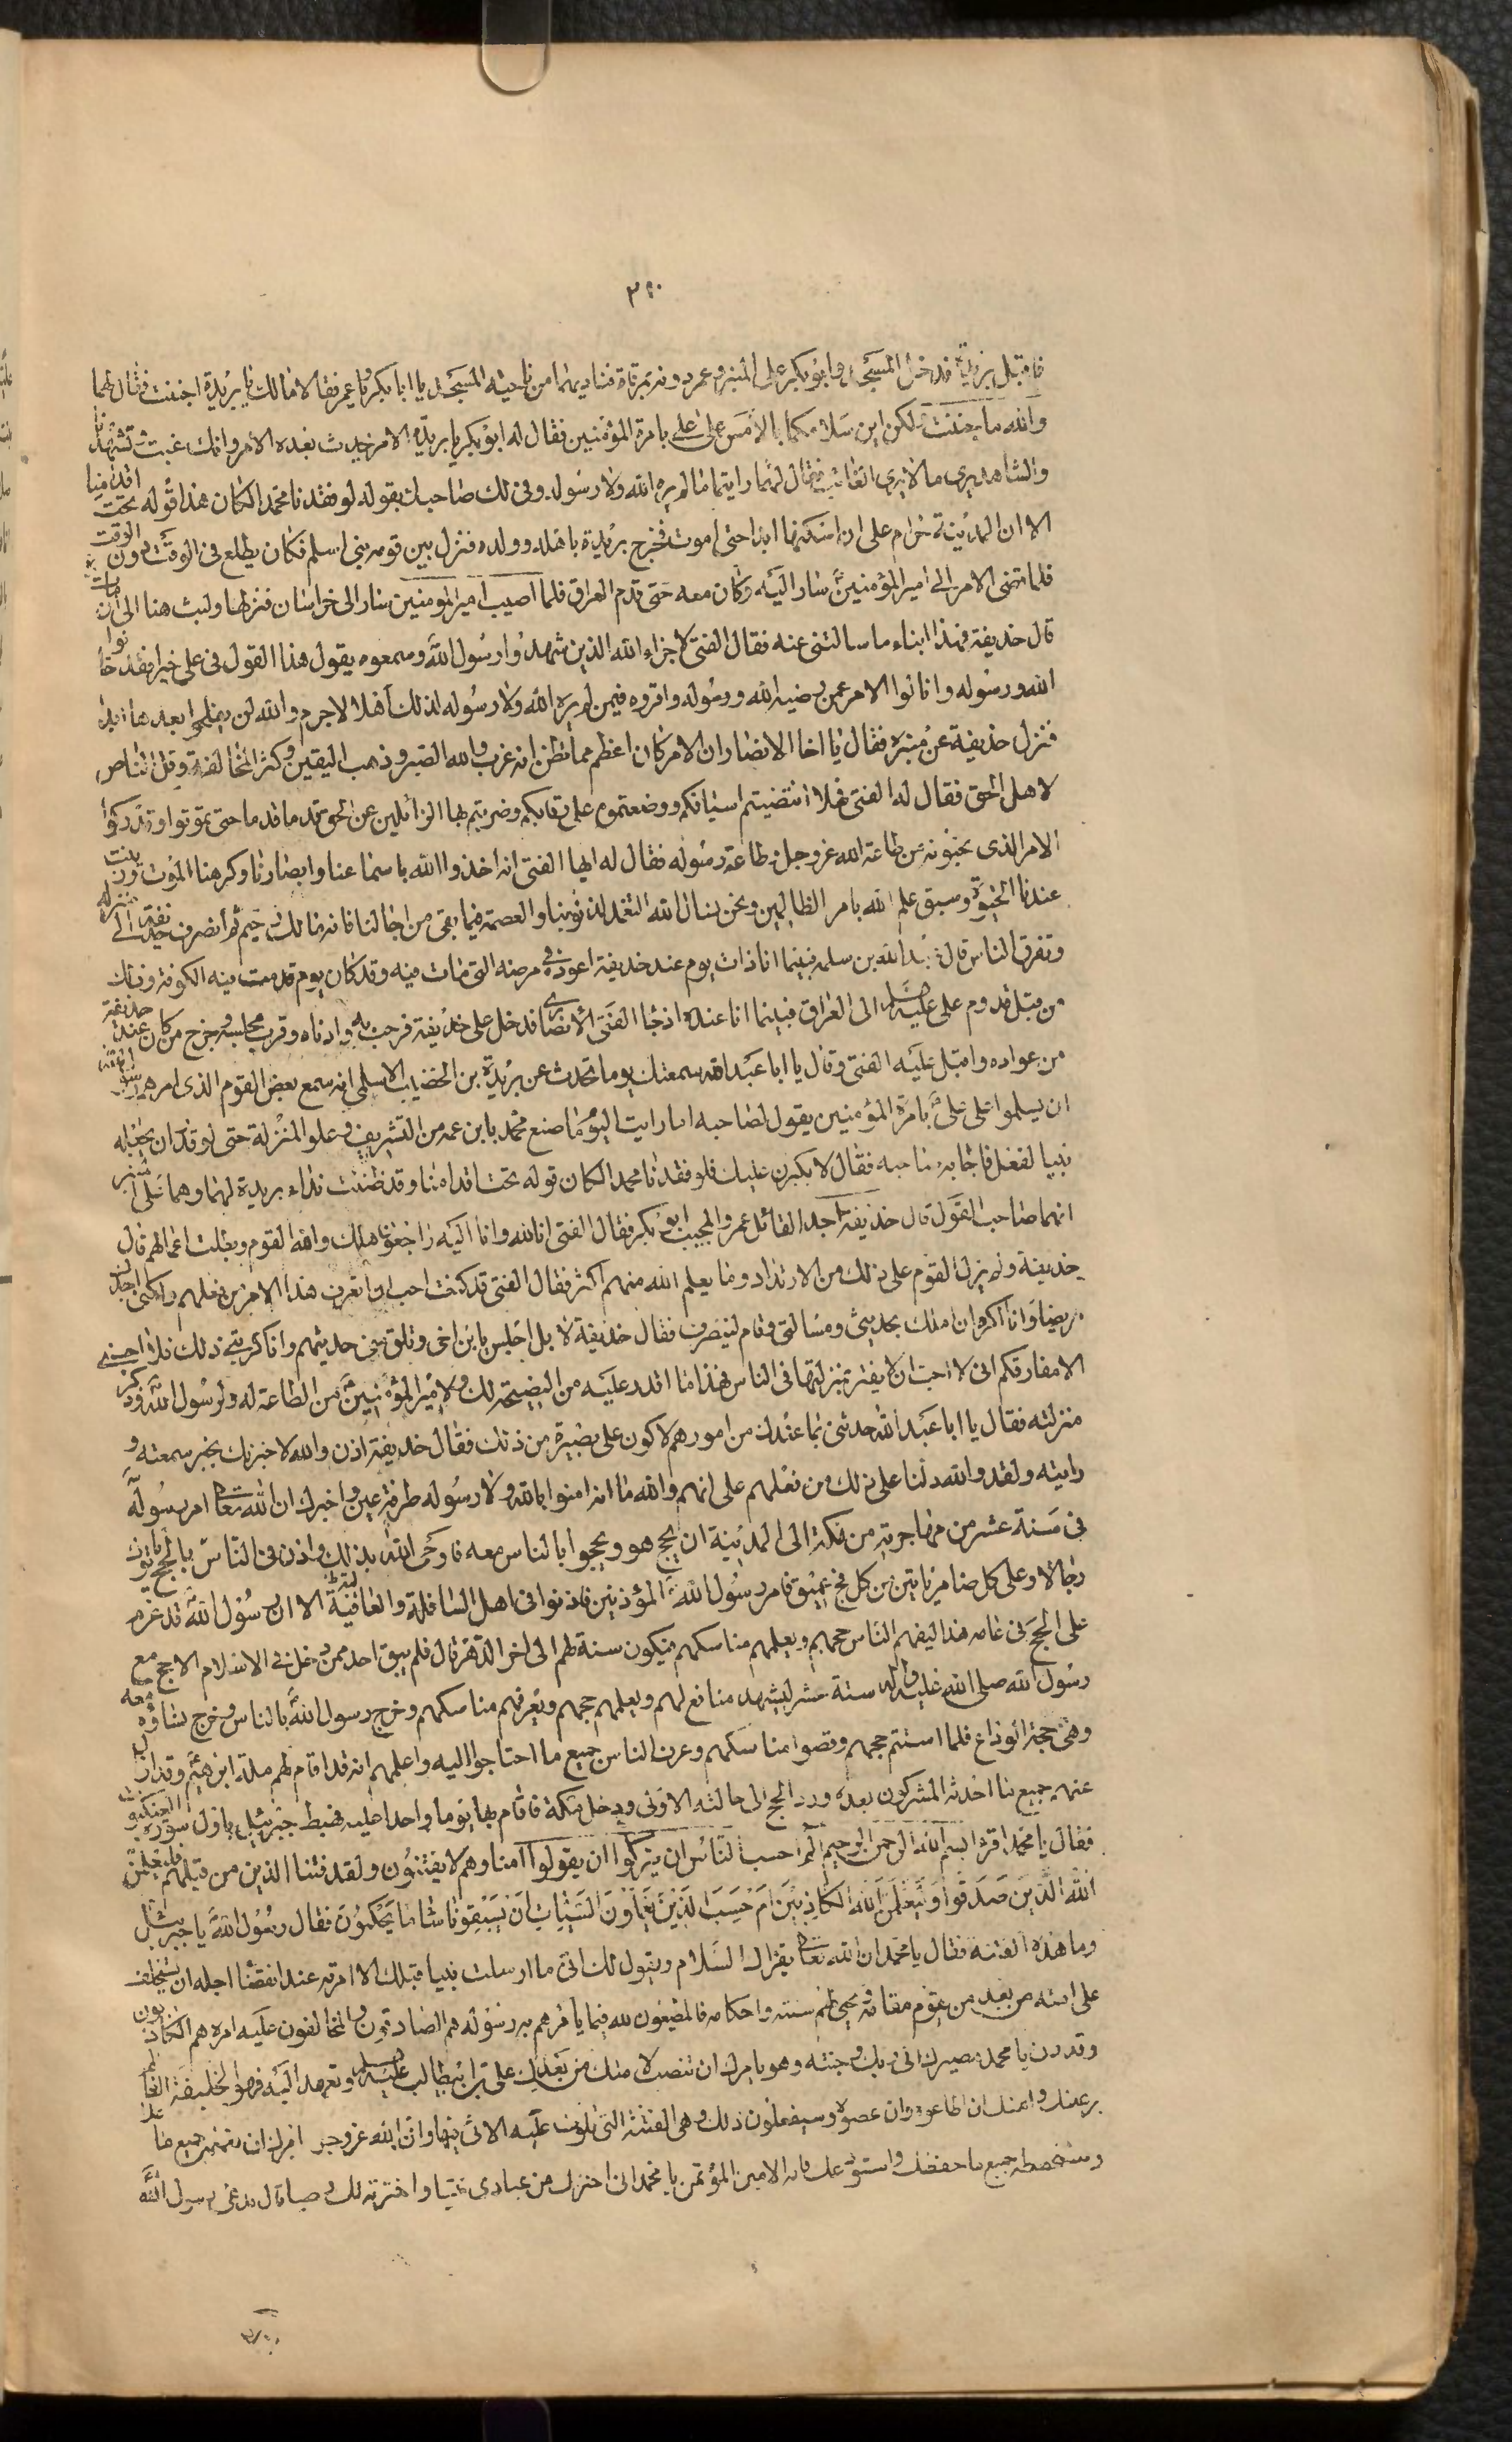 ٣٩٠
فاقبل بريدة قد دخل المسجد وابو بكر على المنبر وعمر دونه بمرقاة فناديهما من ناحية المسجد يا ابا بكر ويا عمر فقالا مالك يا بريدة اجننت فقال لهما
والله ما جننت ولكن اين سلامكما بالامس على على بامرة المؤمنين فقال له ابو بكر يا بريدة الامر يحدث بعده الامر وانك غبت وشهدنا
والشاهد يرى ما لا يرى الغائب فقال لهما رايتما ما لم يره الله ولا رسوله وفى لك صاحبك بقوله لو فقدنا محمدا لكان هذا قوله تحت اقدامنا
الا ان المدينة حرام على ان اسكنها ابدا حتى اموت فخرج بريدة باهله وولده فنزل بين قومه بنى اسلم فكان يطلع فى الوقت دون الوقت
فلما افضى الامر الى امير المؤمنين سار اليه وكان معه حتى قدم العراق فلما اصيب امير المؤمنين سار الى خراسان فنزلها ولبث هنا الى ان مات
قال حذيفة فهذا انباء ما سالتنى عنه فقال الفتى لا جزاء الله الذين شهدوا رسول الله وسمعوه يقول هذا القول فى على خيرا فقد خانوا
الله ورسوله وازالوا الامر عمن رضيه الله ورسوله واقروه فيمن لم يره الله ولا رسوله لذلك اهلا لا جرم والله لن يفلحوا بعدها ابدا
فنزل حذيفة عن منبره فقال يا اخا الانصار ان الامر كان اعظم مما تظن انه عزب والله الصبر وذهب اليقين وكثر المخالف وقل الناصر
لاهل الحق فقال له الفتى فهلا انتضيتم اسيافكم ووضعتموه على رقابكم وضربتم بها الزائلين عن الحق قدما قدما حتى تموتوا او تدركوا
الامر الذى تحبونه من طاعة الله عز وجل وطاعة رسوله فقال له ايها الفتى انه اخذ والله باسماعنا وابصارنا وكرهنا الموت وزينت
عندنا الحيوة وسبق علم الله بامر الظالمين ونحن نسال الله التغمد لذنوبنا والعصمة فيما بقى من اجالنا فانه مالك رحيم ثم انصرف حذيفة الى منزله
وتفرق الناس قال عبد الله بن سلمه فبينما انا ذات يوم عند حذيفة اعوده فى مرضه التى مات فيه وقد كان يوم قدمت فيه الكوفة وذلك
من قبل قدوم على عليه السلام الى العراق فبينما انا عنده اذ جا الفتى الانصارى فدخل على حذيفة فرحب به وادناه وقرب مجلسه وخرج من كان عند حذيفة
من عواده واقبل عليه الفتى وقال يا ابا عبد الله سمعتك يوما تحدث عن بريدة بن الحضيب الاسلمى انه سمع بعض القوم الذى امرهم رسول الله
ان يسلموا على على بامرة المؤمنين يقول لصاحبه اما رايت اليوم ما صنع محمد بابن عمه من التشريف وعلو المنزلة حتى لو قدر ان يجعله
نبيا لفعل فاجابه صاحبه فقال لا يكبرن عليك فلو فقدنا محمدا لكان قوله تحت اقدامنا وقد ظننت نداء بريدة لهما وهما على المنبر
انهما صاحبا القول قال حذيفة اجل القائل عمر والمجيب ابو بكر فقال الفتى انا لله وانا اليه راجعون هلك والله القوم وبطلت اعمالهم قال
حذيفة ولم يزل القوم على ذلك من الارتداد وما يعلم الله منهم اكثر فقال الفتى قد كنت احب ان اتعرف هذا الامر من فعلهم ولكنى اجدك
مريضا وانا اكره ان املك بحديثى ومسالتى وقام لينصرف فقال حذيفة لا بل اجلس يا بن اخى وتلق منى حديثهم وانا كربنى ذلك فلا احسبنى
الا مفارقكم انى لا احب ان لا يغتر بمنزلتهما فى الناس فهذا ما اقدر عليه من النصيحة لك ولامير المؤمنين من الطاعة له ولرسول الله وذكر
منزلته فقال يا ابا عبد الله حدثنى بما عندك من امورهم لاكون على بصيرة من ذلك فقال حذيفة اذن والله لاخبرنك بخبر سمعته و
رايته ولقد والله دلنا على ذلك من فعلهم على انهم والله ما امنوا بالله ولا رسوله طرفة عين واخبرك ان الله تعالى امر رسوله
فى سنة عشر من مهاجرته من مكة الى المدينة ان يحج هو ويحجوا بالناس معه فاوحى الله بذلك واذن فى الناس بالحج ياتوك
رجالا وعلى كل ضامر ياتين من كل فج عميق فامر رسول الله المؤذنين فاذنوا فى اهل السافلة والعالية الا ان رسول الله قد عزم
على الحج فى عامه هذا ليفهم الناس حجهم ويعلمهم مناسكهم فيكون سنة لهم الى اخر الدهر قال فلم يبق احد ممن دخل فى الاسلام الا حج مع
رسول الله صلى الله عليه واله سنة عشر ليشهد منافع لهم ويعلمهم حجهم ويعرفهم مناسكهم وخرج رسول الله بالناس وخرج بنساؤه معه
وهى حجة الوداع فلما استتم حجهم وقضوا مناسكهم وعرف الناس جميع ما احتاجوا اليه واعلمهم انه قد اقام لهم ملة ابرهيم وقد ازال
عنهم جميع ما احدثه المشركون بعده ورد الحج الى حالته الاولى ودخل مكة فاقام بها يوما واحدا عليه فهبط جبرئيل باول سورة العنكبوت
فقال يا محمد اقرء بسم الله الرحمن الرحيم الم احسب الناس ان يتركوا ان يقولوا امنا وهم لا يفتنون ولقد فتنا الذين من قبلهم فليعلمن
الله الذين صدقوا وليعلمن الله الكاذبين ام حسب الذين يعملون السيئات ان يسبقونا ساء ما يحكمون فقال رسول الله يا جبرئيل
وما هذه الفتنة فقال يا محمد ان الله تعالى يقرئك السلام ويقول لك انى ما ارسلت نبيا قبلك الا امرته عند انقضا اجله ان يستخلف
على امته من بعده من يقوم مقامه ويحيى لهم سنته واحكامه فالمطيعون لله فيما يامرهم به رسوله هم الصادقون والمخالفون عليه امره هم الكاذبون
وقد دن يا محمد مصيرك الى ربك وجنته وهو يامرك ان تنصب لامتك من بعدك على بن ابيطالب عليه السلام وتعهد اليه فهو الخليفة القائم
برعيتك وامتك ان اطاعوه وان عصوه وسيفعلون ذلك وهى الفتنة التى تلوت عليه الاى فيها وان الله عز وجل امرك ان تعلمه جميع ما علمك
وتستحفظه جميع ما حفظك واستودعك فانه الامين المؤتمن يا محمد انى اخترتك من عبادى نبيا واخترته لك وصيا قال فدعى رسول الله